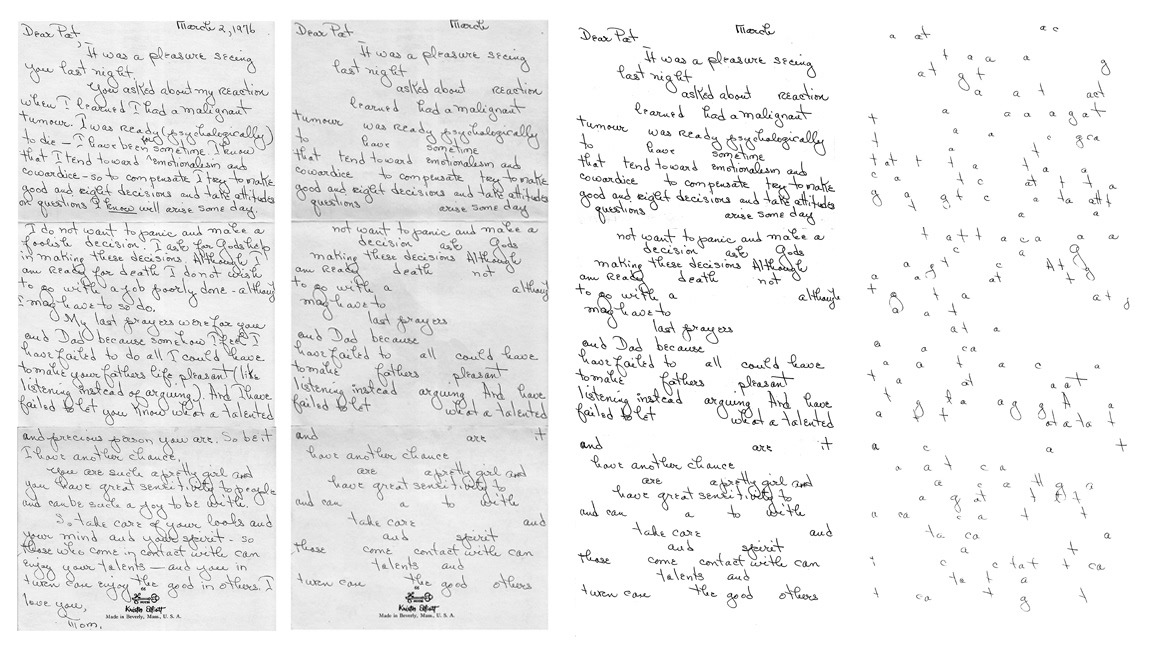 March 2, 1976
Dear Pat,
It was a pleasure seeing
you last night.
You asked about my reaction
when I learned I had a malignant
tumour. I was ready (psychologically)
to die – I have been for sometime. I know
that I tend toward emotionalism and
cowardice – so to compensate I try to make
good and right decisions and take attitudes
on questions I know will arise some day.
I do not want to panic and make a
foolish decision. I ask for Gods help
in making these decisions. Although I
am ready for death I do not wish
to go with a job poorly done – although
I may have to so do.
My last prayers were for you
and Dad because somehow I feel I
have failed to do all I could have
to make your fathers life pleasant (like
listening instead of arguing). And I have
failed to let you know what a talented
and precious person you are. So be it
I have another chance.
You are such a pretty girl and
you have great sensitivity to people
and can be such a joy to be with.
So take care of your looks and
your mind and your spirit – so
those who come in contact with can
enjoy your talents – and you in
turn can enjoy the good in others. I
Kristin Elliott
Made in Beverly, Mass., U. S. A.
love you,
Mom.
March
Dear Pat
It was a pleasure seeing
last night
asked about reaction
learned had a malignant
tumour was ready psychologically
to have sometime
that tend toward emotionalism and
cowardice to compensate try to make
good and right decisions and take attitudes
questions arise some day
not want to panic and make a
decision ask Gods
making these decisions Although
am ready death not
to go with a although
may have to
last prayers
and Dad because
have failed to all could have
to make fathers pleasant
listening instead arguing And have
failed to let what a talented
and are it
have another chance
are a pretty girl and
have great sensitivity to
and can a to with
take care and
and spirit
those come contact with can
talents and
turn can the good others
Kristin Elliott
Made in Beverly, Mass., U. S. A.
March
Dear Pat
It was a pleasure seeing
last night
asked about reaction
learned had a malignant
tumour was ready psychologically
to have sometime
that tend toward emotionalism and
cowardice to compensate try to make
good and right decisions and take attitudes
questions arise some day
not want to panic and make a
decision ask Gods
making these decisions Although
am ready death not
to go with a although
may have to
last prayers
and Dad because
have failed to all could have
to make fathers pleasant
listening instead arguing And have
failed to let what a talented
and are it
have another chance
are a pretty girl and
have great sensitivity to
and can a to with
take care and
and spirit
those come contact with can
talents and
turn can the good others